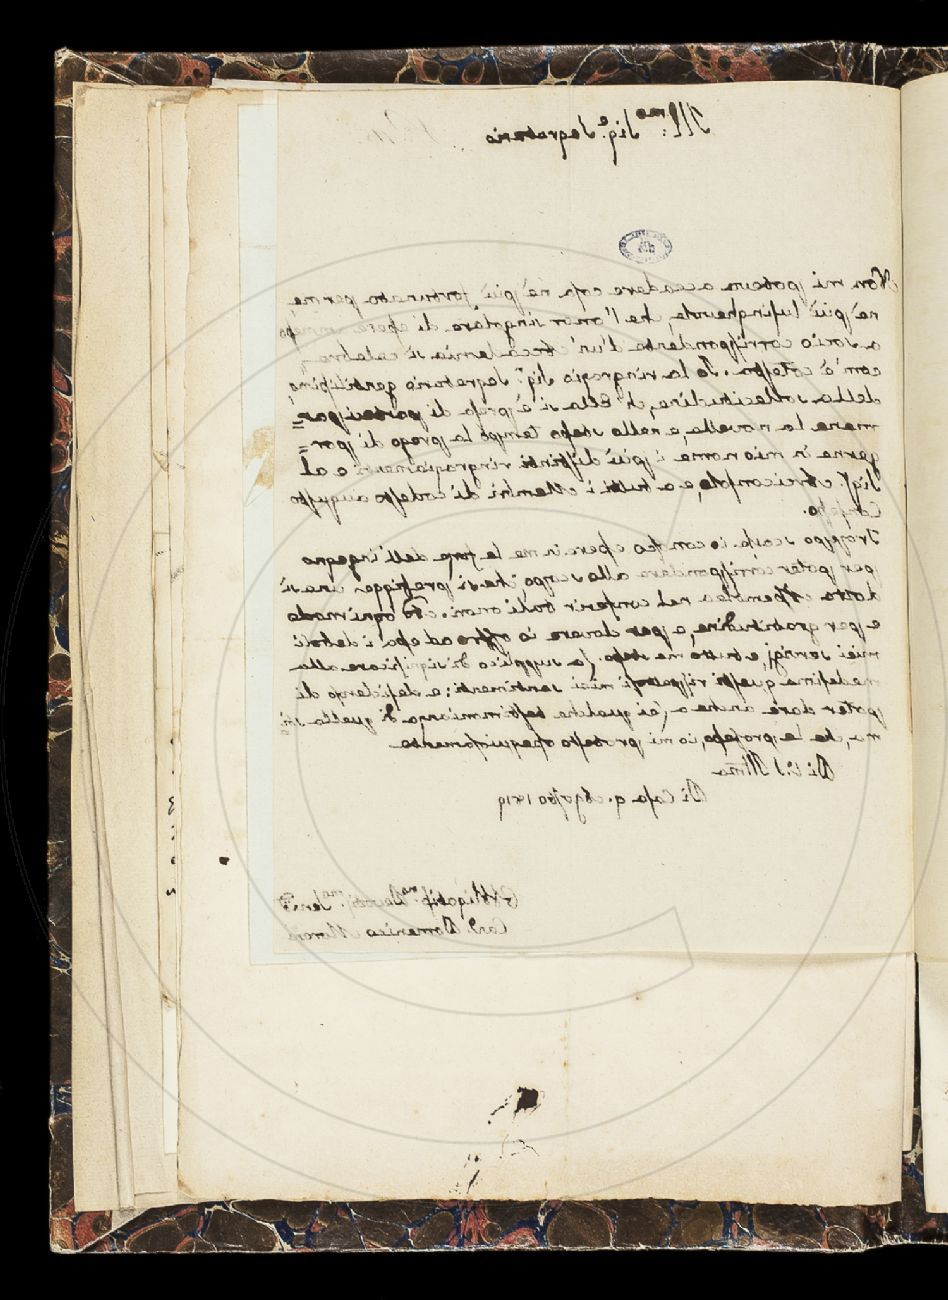 Ill.mo Sig.e Segretario
Non mi poteva accadere cosa nè più fortunata per me,
nè più lusinghevole, che l'onor singolare di essere
a socio corrispondente d'un' Accademia sì celebre,
com'è cotesta. Io la ringrazio Sig.r Segretario gentilissimo,
della sollecitudine, ch'Ella si è presa di partecipar=
mene la novella, e nello stesso tempo la prego di por=
gerne in mio nome i più distinti ringraziamenti e al
Sig.r Arciconsole, e a tutti i Membri di codesto augusto
Consesso.
Troppo scarsa io conosco essere in me la forza dell'ingegno
per poter corrispondere allo scopo, che si prefigge una sì
dotta Assemblea nel conferir tali onori. Ad ogni modo
e per gratitudine, e per dovere io offro ad essa i deboli
miei servigj, e tutto me stesso. La supplico di significare alla
medesima questi rispettosi miei sentimenti: e desidero di
poter dare anche a Lei qualche testimonianza di quella sti=
ma, che le professo, io mi protesto ossequiosamente
Di V. S. Illma
Di Casa 9. Agosto 1819
Obbligatiss.mo Devotiss.mo Serv.e
Domenico